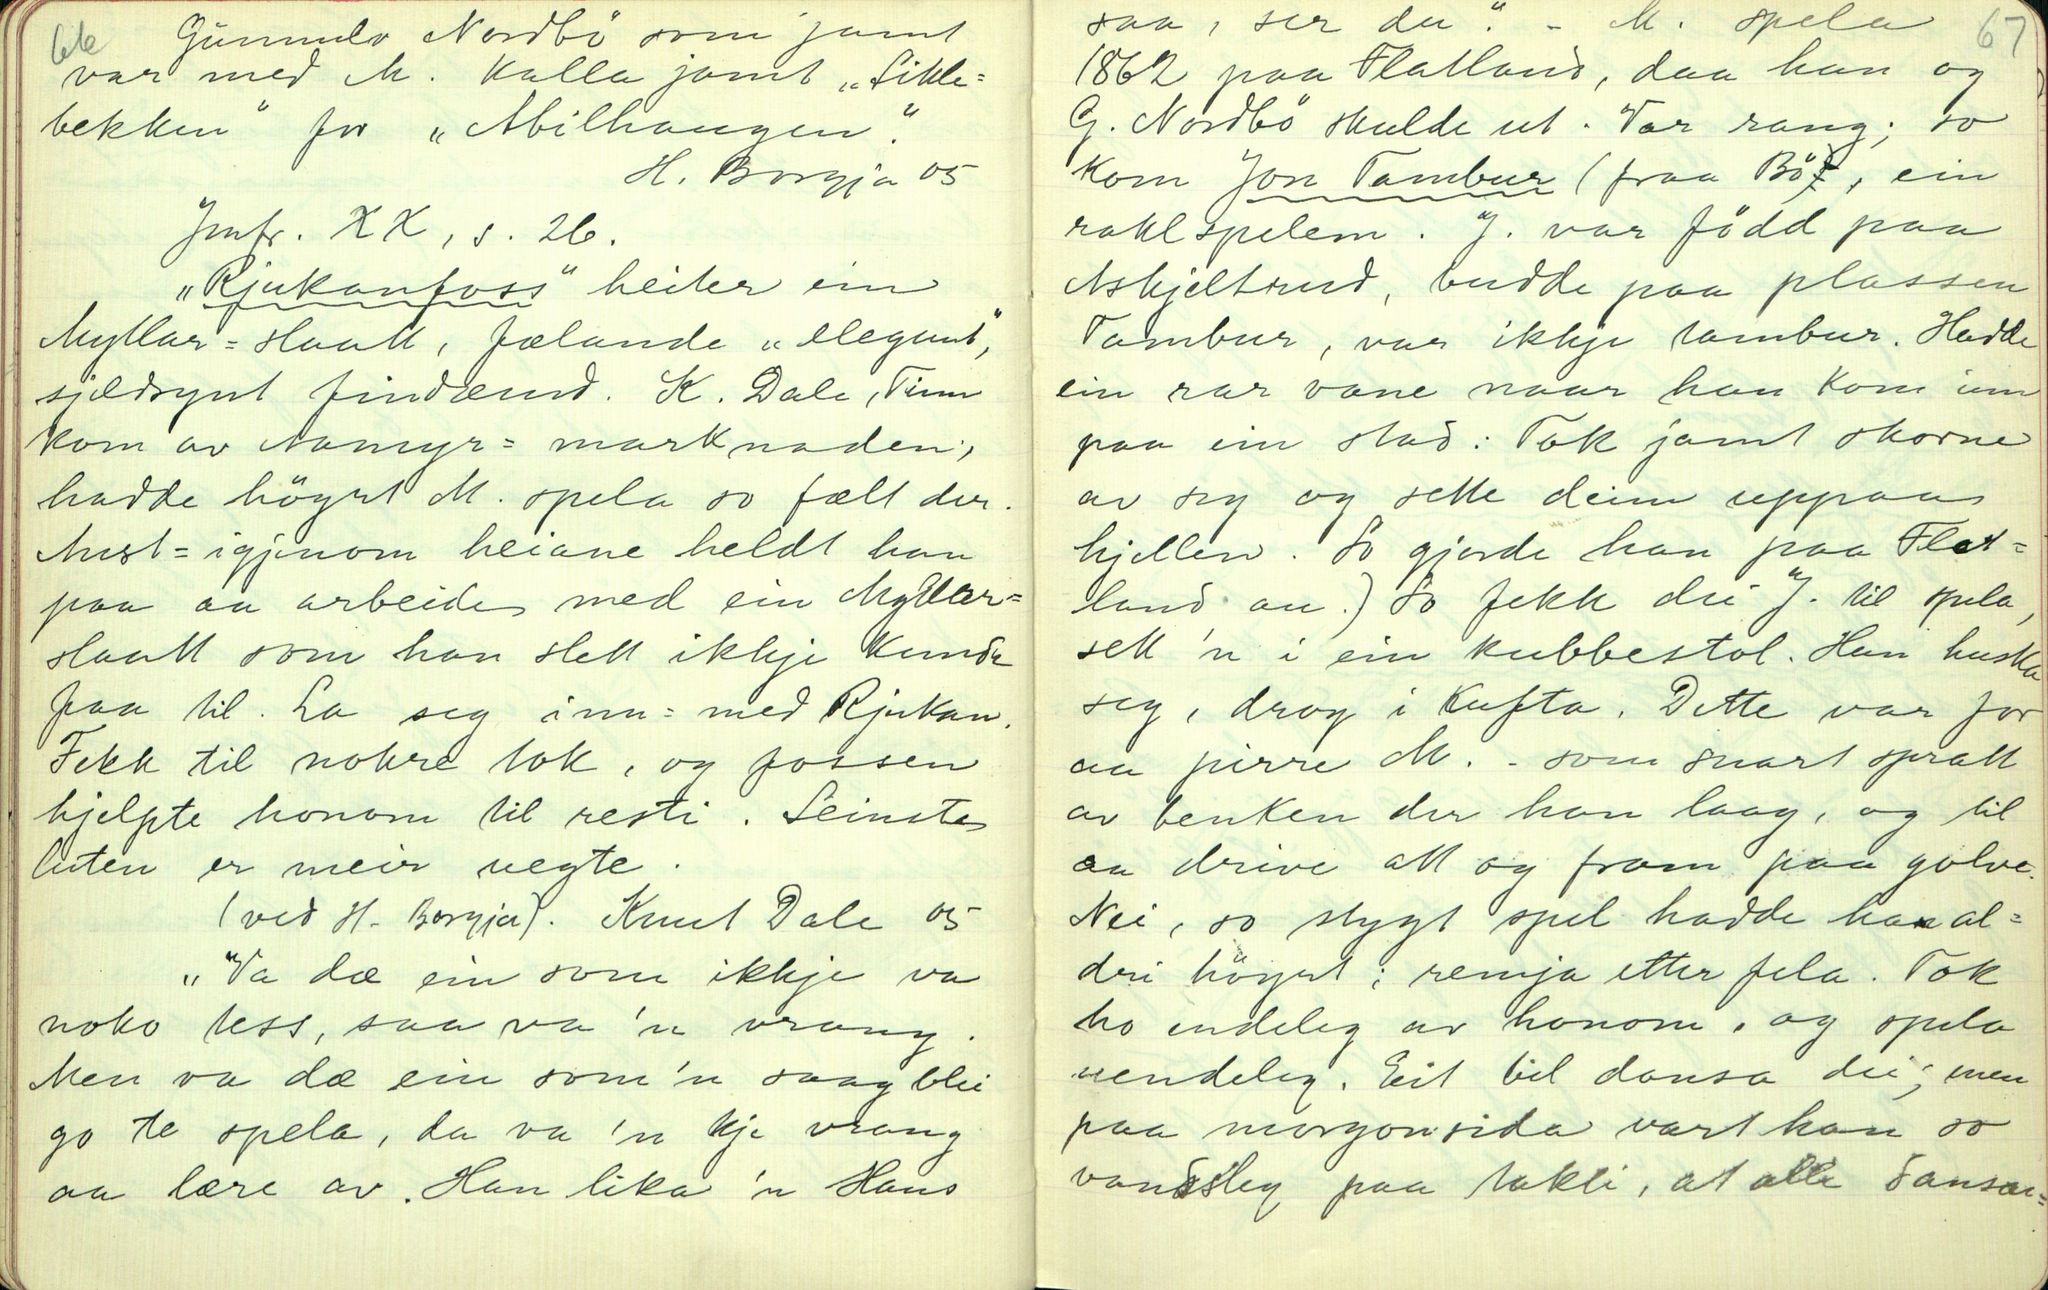 66
Gunnulv Nordbö som jamt
var med M. kalla jamt „Sikle=
bekken" for „Abilhaugen".
H. Borgja 05
Jmfr. XX, s. 26.
„Rjukanfoss" heiter ein
Myllar=slaatt, fælande „elegant",
sjeldsynt findænd. K. Dale, Tinn
kom av Aamyr=marknaden;
hadde högrt M. spela so fælt der.
Aust=igjenom heiane heldt han
paa aa arbeide med ein Myllar=
slaatt som han slett ikkje kunde
faa til. La seg inn=med Rjukan.
Fekk til nokre tok, og fossen
hjelpte honom til resti. Seinste
luten er meir uegte.
(ved H. Borgja). Knut Dale 05
„Va dæ ein som ikkje va
noko tess, saa va 'n vrang.
Men va dæ ein som 'n saag blei
go te spela, da va 'n kje vrang
aa lære av. Han lika 'n Hans
67
saa, ser du". - M. spela
1862 paa Flatland, daa han og
G. Nordbö skulde ut. Var rang; so
kom Jon Tambur (fraa Bö, ein
raklspelem. J. var född paa
Askjeltrud, budde paa plassen
Tambur, var ikkje tambur. Hadde
ein rar vane naar han kom inn
paa ein stad: Tok jamt skorne
av seg og sette deim uppaa
hjellen. So gjorde han paa Flat=
land au.) So fekk dei J. til spela,
sett 'n i ein kubbestol. Han huska
seg, drog i kufta. Dette var for
aa pirre M. - som snart spratt
av benken der han laag, og til
aa drive att og fram paa golve.
Nei, so stygt spel hadde han al=
dri högrt; remja etter fela. Tok
ho endeleg av honom, og spela
uendeleg. Eit bil dansa dei; men
paa morgonsida vart han so
vandsleg paa takti, at alle dansar=